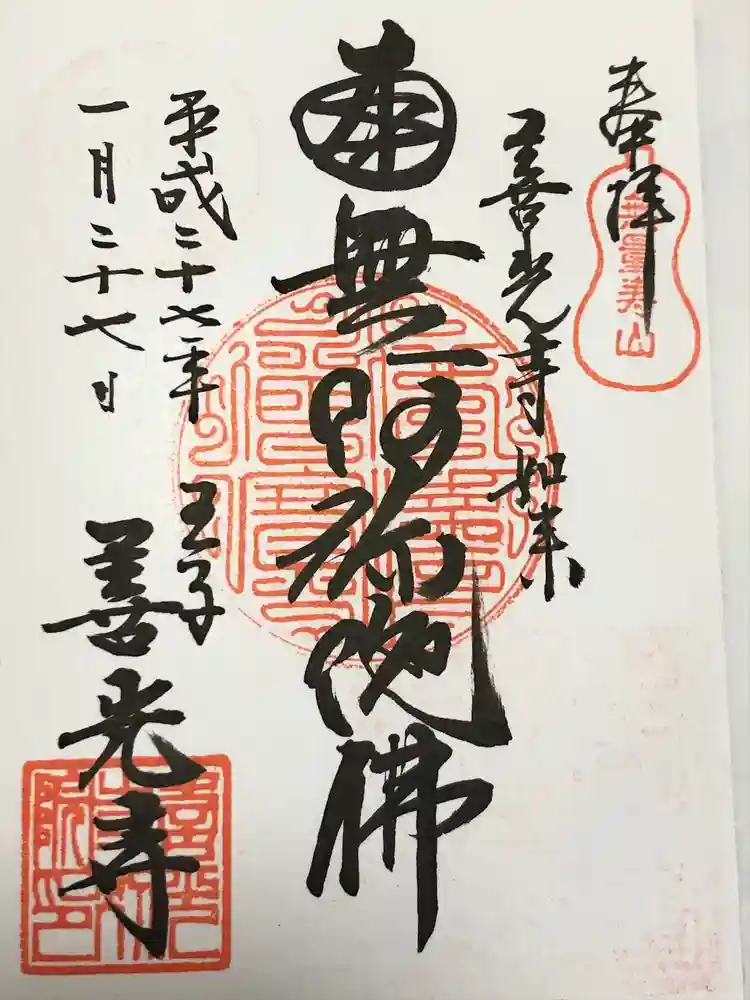 奉拝
善光寺如来
南無阿弥陀佛
平成二十七年
一月二十七日
王子
善光寺
無量寿山